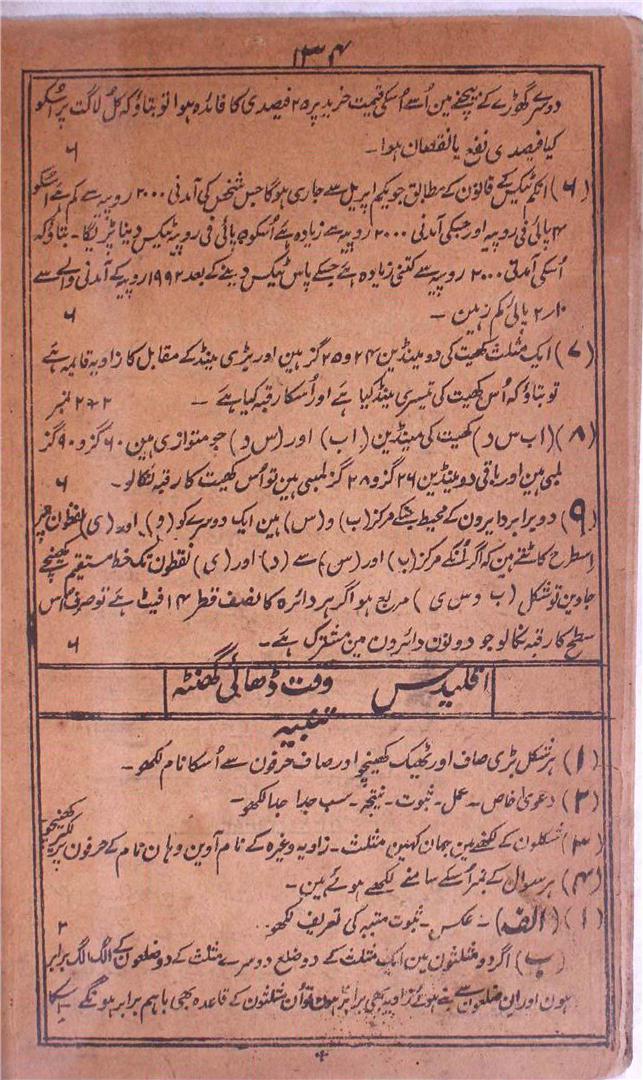 ۱۳۴
دوسرے گھوڑے کے بیچنے مین اُسے اُسکی قیمت خرید پر ۲۵ فیصدی کا فائدہ ہوا تو بتاؤ کہ کل لاگت پر اُسکو
کیا فیصدی نفع یا نقصان ہوا۔ ۶
(۶) انکم ٹیکس کے قانون کے مطابق جو یکم اپریل سے جاری ہوگا جس شخص کی آمدنی ۲۰۰۰ روپیہ سے کم ہے اُسکو
۴ پائی فی روپیہ اور جسکی آمدنی ۲۰۰۰ روپیہ سے زیادہ ہے اُسکو ۵ پائی فی روپیہ ٹیکس دینا پڑیگا۔ بتاؤ کہ
اُسکی آمدنی ۲۰۰۰ روپیہ سے کتنی زیادہ ہے جسکے پاس ٹیکس دینے کے بعد ۱۹۹۲ روپیہ کے آمدنی والے سے
۲ پائی کم رہین۔ ۶
(۷) ایک مثلث کھیت کی دو مینڈین ۲۴ و ۲۵ گز ہین اور بڑی مینڈ کے مقابل کا زاویہ قایمہ ہے
تو بتاؤ کہ اُس کھیت کی تیسری مینڈ کیا ہے اور اُسکا رقبہ کیا ہے۔ ۲+۲ نمبر
(۸) (ا ب س د) کھیت کی مینڈین (ا ب) اور (س د) جو متوازی ہین ۶۰ گز و ۹۰ گز
لمبی ہین اور باقی دو مینڈین ۲۶ گز و ۲۸ گز لمبی ہین تو اُس کھیت کا رقبہ نکالو۔ ۶
(۹) دو برابر دایرون کے محیط جنکے مرکز (ب) و (س) ہین ایک دوسرے کو (و) اور (ی) نقطون پر
اسطرح کاٹتے ہین کہ اگر اُنکے مرکز (ب) اور (س) سے (د) اور (ی) نقطون تک خط مستقیم کھینچے
جاوین تو شکل (ب و س ی) مربع ہو اگر ہر دائرہ کا نصف قطر ۱۴ فیٹ ہے تو صرف اُس
سطح کا رقبہ نکالو جو دونون دائرون مین مشترک ہے۔ ۶
اقلیدس وقت ڈھائی گھنٹہ
تنبیہ
(۱) ہر شکل بڑی صاف اور ٹھیک کھینچو اور صاف حرفون سے اُسکا نام لکھو۔
(۲) دعویٰ خاص۔ عمل۔ ثبوت۔ نتیجہ۔ سب جدا جدا لکھو۔
(۳) شکلون کے لکھنے مین جہان کہین مثلث۔ زاویہ وغیرہ کے نام آوین وہان تمام کے حرفون پر لکیر کھینچو
(۴) ہر سوال کے نمبر اُسکے سامنے لکھے ہوئے ہین۔
(۱) (الف)۔ عکس۔ ثبوت متبہ کی تعریف لکھو۔ ۲
(ب) اگر دو مثلثون مین ایک مثلث کے دو ضلع دوسرے مثلث کے دو ضلعون کے الگ الگ برابر
ہون اور ان ضلعون سے بنے ہوئے زاویہ بھی برابر ہون تو اُن مثلثون کے قاعدہ بھی باہم برابر ہونگے